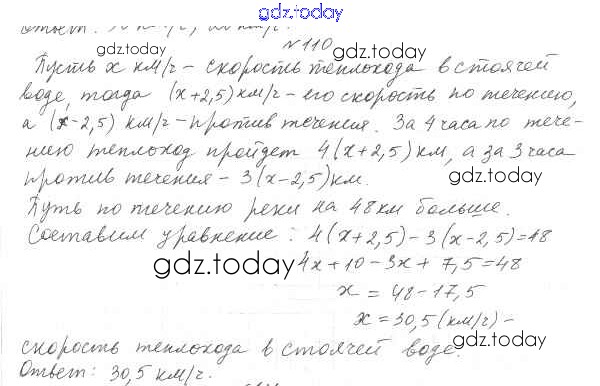 gdz.today
№ 110
gdz.today gdz.today
Пусть x км/г - скорость теплохода в стоячей
воде, тогда (x+2,5) км/г - его скорость по течению,
а (x-2,5) км/г - против течения. За 4 часа по тече-
нию теплоход пройдет 4(x+2,5) км, а за 3 часа
против течения - 3(x-2,5) км.
gdz.today gdz.today
Путь по течению реки на 48 км больше.
Составим уравнение: 4(x+2,5)-3(x-2,5)=48
gdz.today
4x+10-3x+7,5=48
x = 48-17,5
x = 30,5 (км/г) -
gdz.today
скорость теплохода в стоячей воде.
Ответ: 30,5 км/г.
gdz.today gdz.today